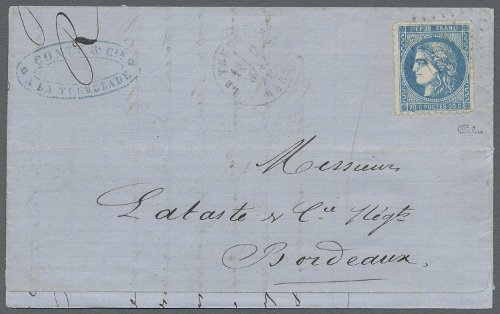 & Cie
A LA TREMBLADE
REPUB. FRANC.
20 C. POSTES 20 C.
Messieurs
Labaste & Cie Négts
Bordeaux.